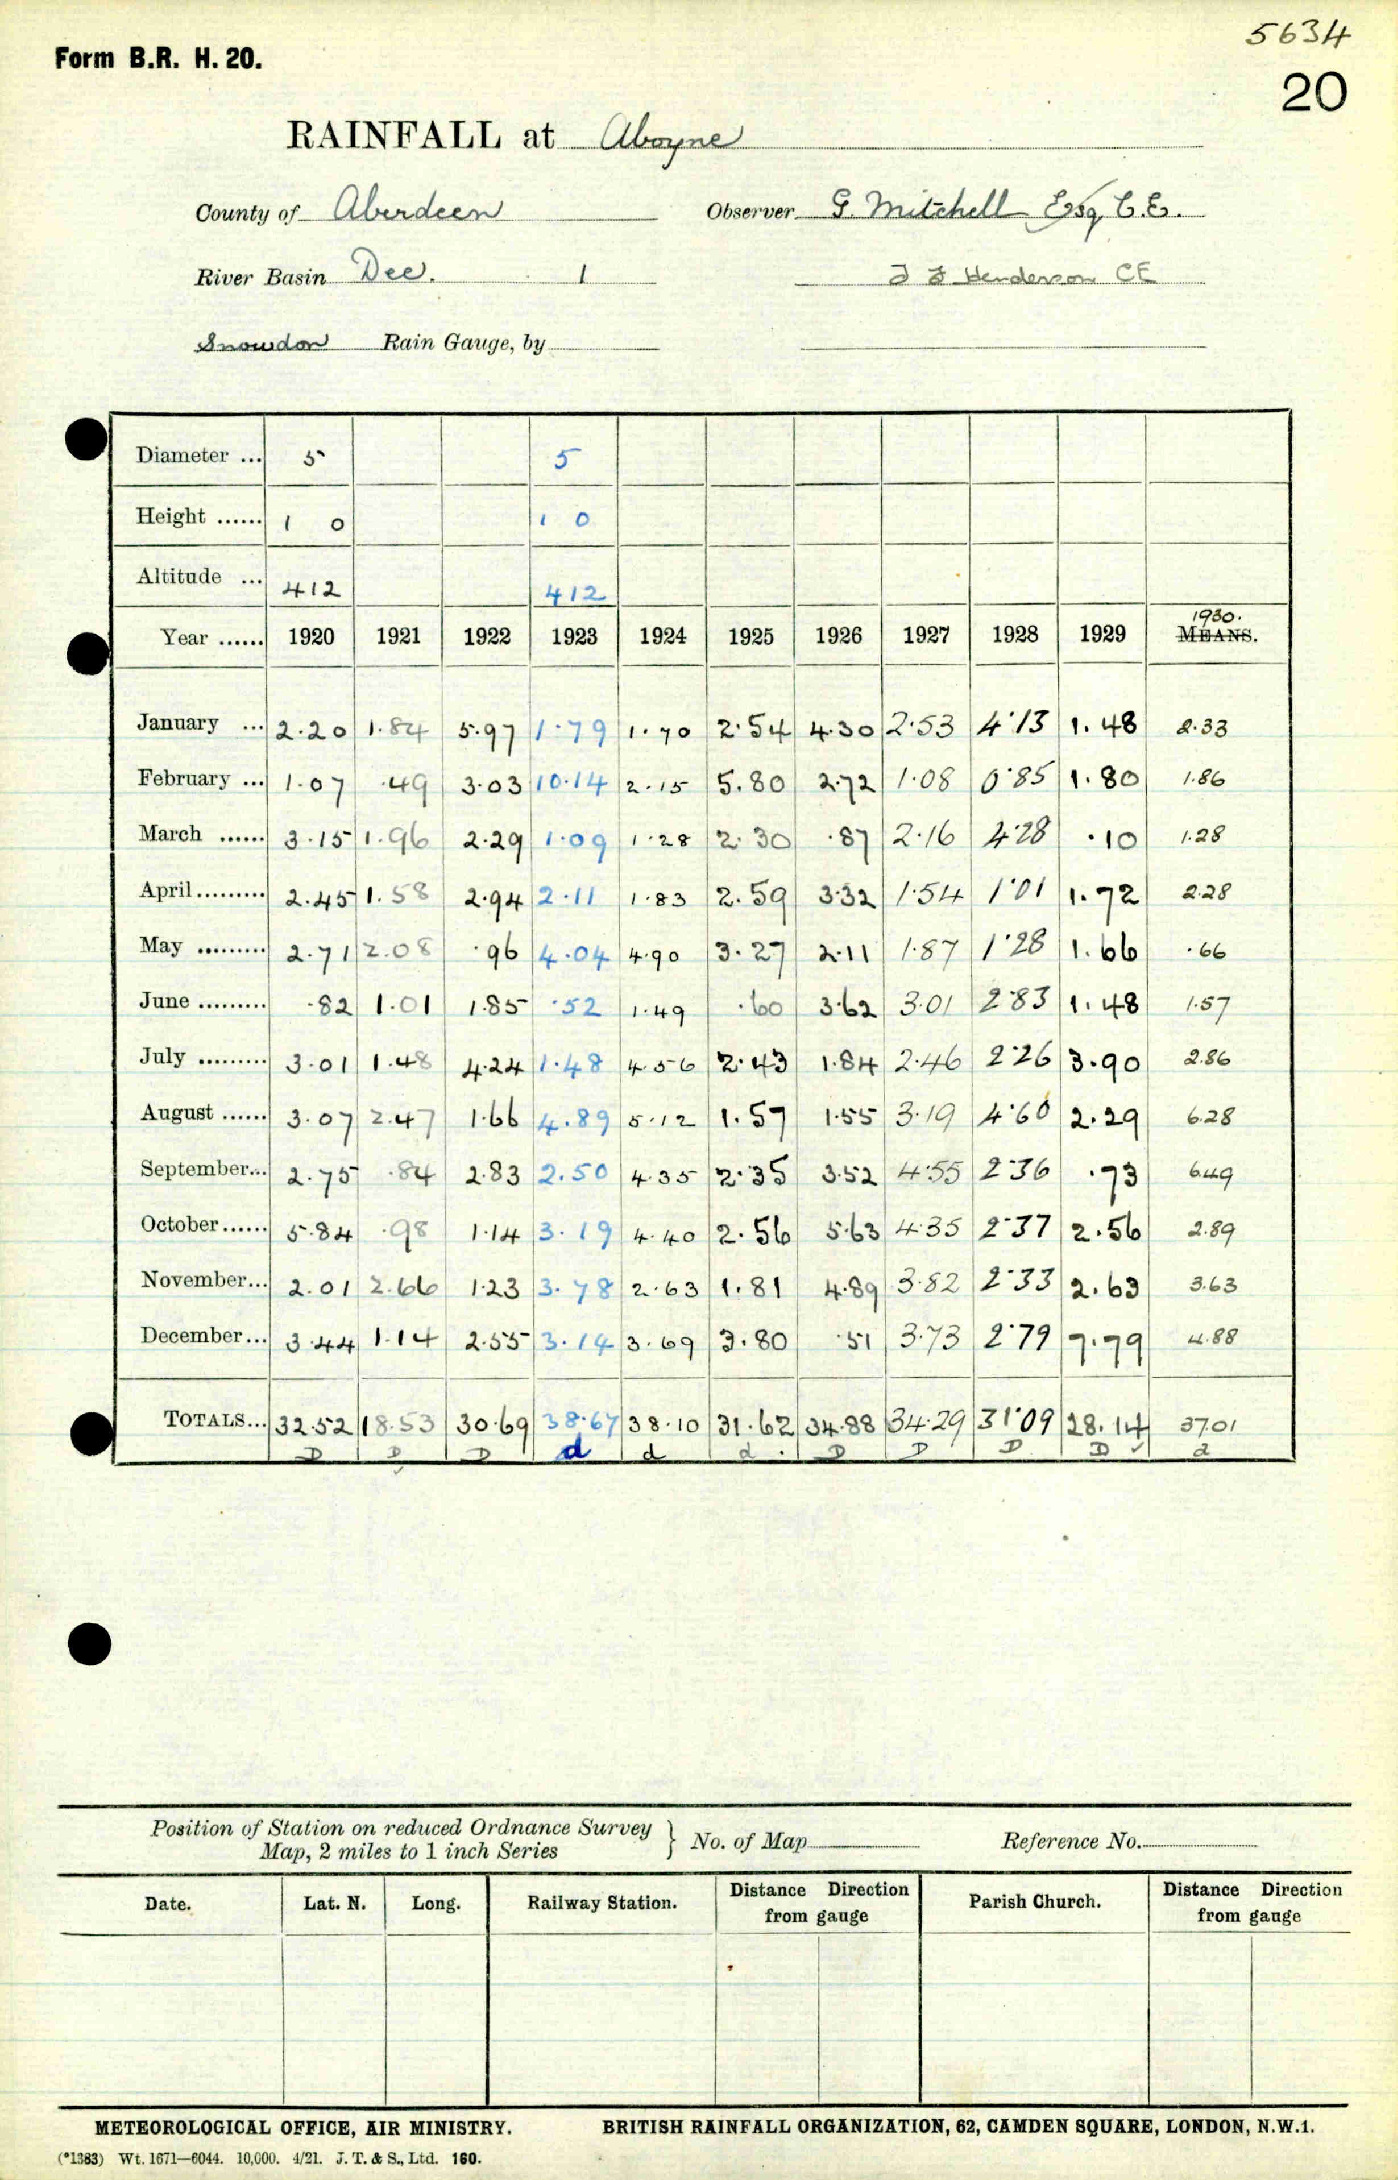 5634
Form B.R. H. 20.
20
RAINFALL at Aboyne
County of Aberdeen Observer G. Mitchell Esq C.E.
River Basin Dee. 1 J F Henderson CE
Snowdon Rain Gauge, by
Diameter ... 5 5
Height ...... 1 0 1 0
Altitude ... 412 412
1930.
Year ...... 1920 1921 1922 1923 1924 1925 1926 1927 1928 1929 MEANS.
January ... 2.20 1.84 5.97 1.79 1.70 2.54 4.30 2.53 4.13 1.48 2.33
February ... 1.07 .49 3.03 10.14 2.15 5.80 2.72 1.08 0.85 1.80 1.86
March ...... 3.15 1.96 2.29 1.09 1.28 2.30 .87 2.16 4.28 .10 1.28
April......... 2.45 1.58 2.94 2.11 1.83 2.59 3.32 1.54 1.01 1.72 2.28
May ......... 2.71 2.08 .96 4.04 4.90 3.27 2.11 1.87 1.28 1.66 .66
June ......... .82 1.01 1.85 .52 1.49 .60 3.62 3.01 2.83 1.48 1.57
July ......... 3.01 1.48 4.24 1.48 4.56 2.43 1.84 2.46 2.26 3.90 2.86
August ...... 3.07 2.47 1.66 4.89 5.12 1.57 1.55 3.19 4.60 2.29 6.28
September... 2.75 .84 2.83 2.50 4.35 2.35 3.52 4.55 2.36 .73 6.49
October...... 5.84 .98 1.14 3.19 4.40 2.56 5.63 4.35 2.37 2.56 2.89
November... 2.01 2.66 1.23 3.78 2.63 1.81 4.89 3.82 2.33 2.63 3.63
December... 3.44 1.14 2.55 3.14 3.69 3.80 .51 3.73 2.79 7.79 4.88
TOTALS... 32.52 18.53 30.69 38.67 38.10 31.62 34.88 34.29 31.09 28.14 37.01
D D D d d d D D D D d
Position of Station on reduced Ordnance Survey
Map, 2 miles to 1 inch Series } No. of Map Reference No.
Date. Lat. N. Long. Railway Station. Distance Direction from gauge Parish Church. Distance Direction from gauge
METEOROLOGICAL OFFICE, AIR MINISTRY. BRITISH RAINFALL ORGANIZATION, 62, CAMDEN SQUARE, LONDON, N.W.1.
(*1383) Wt. 1671—6044. 10,000. 4/21. J. T. & S., Ltd. 160.